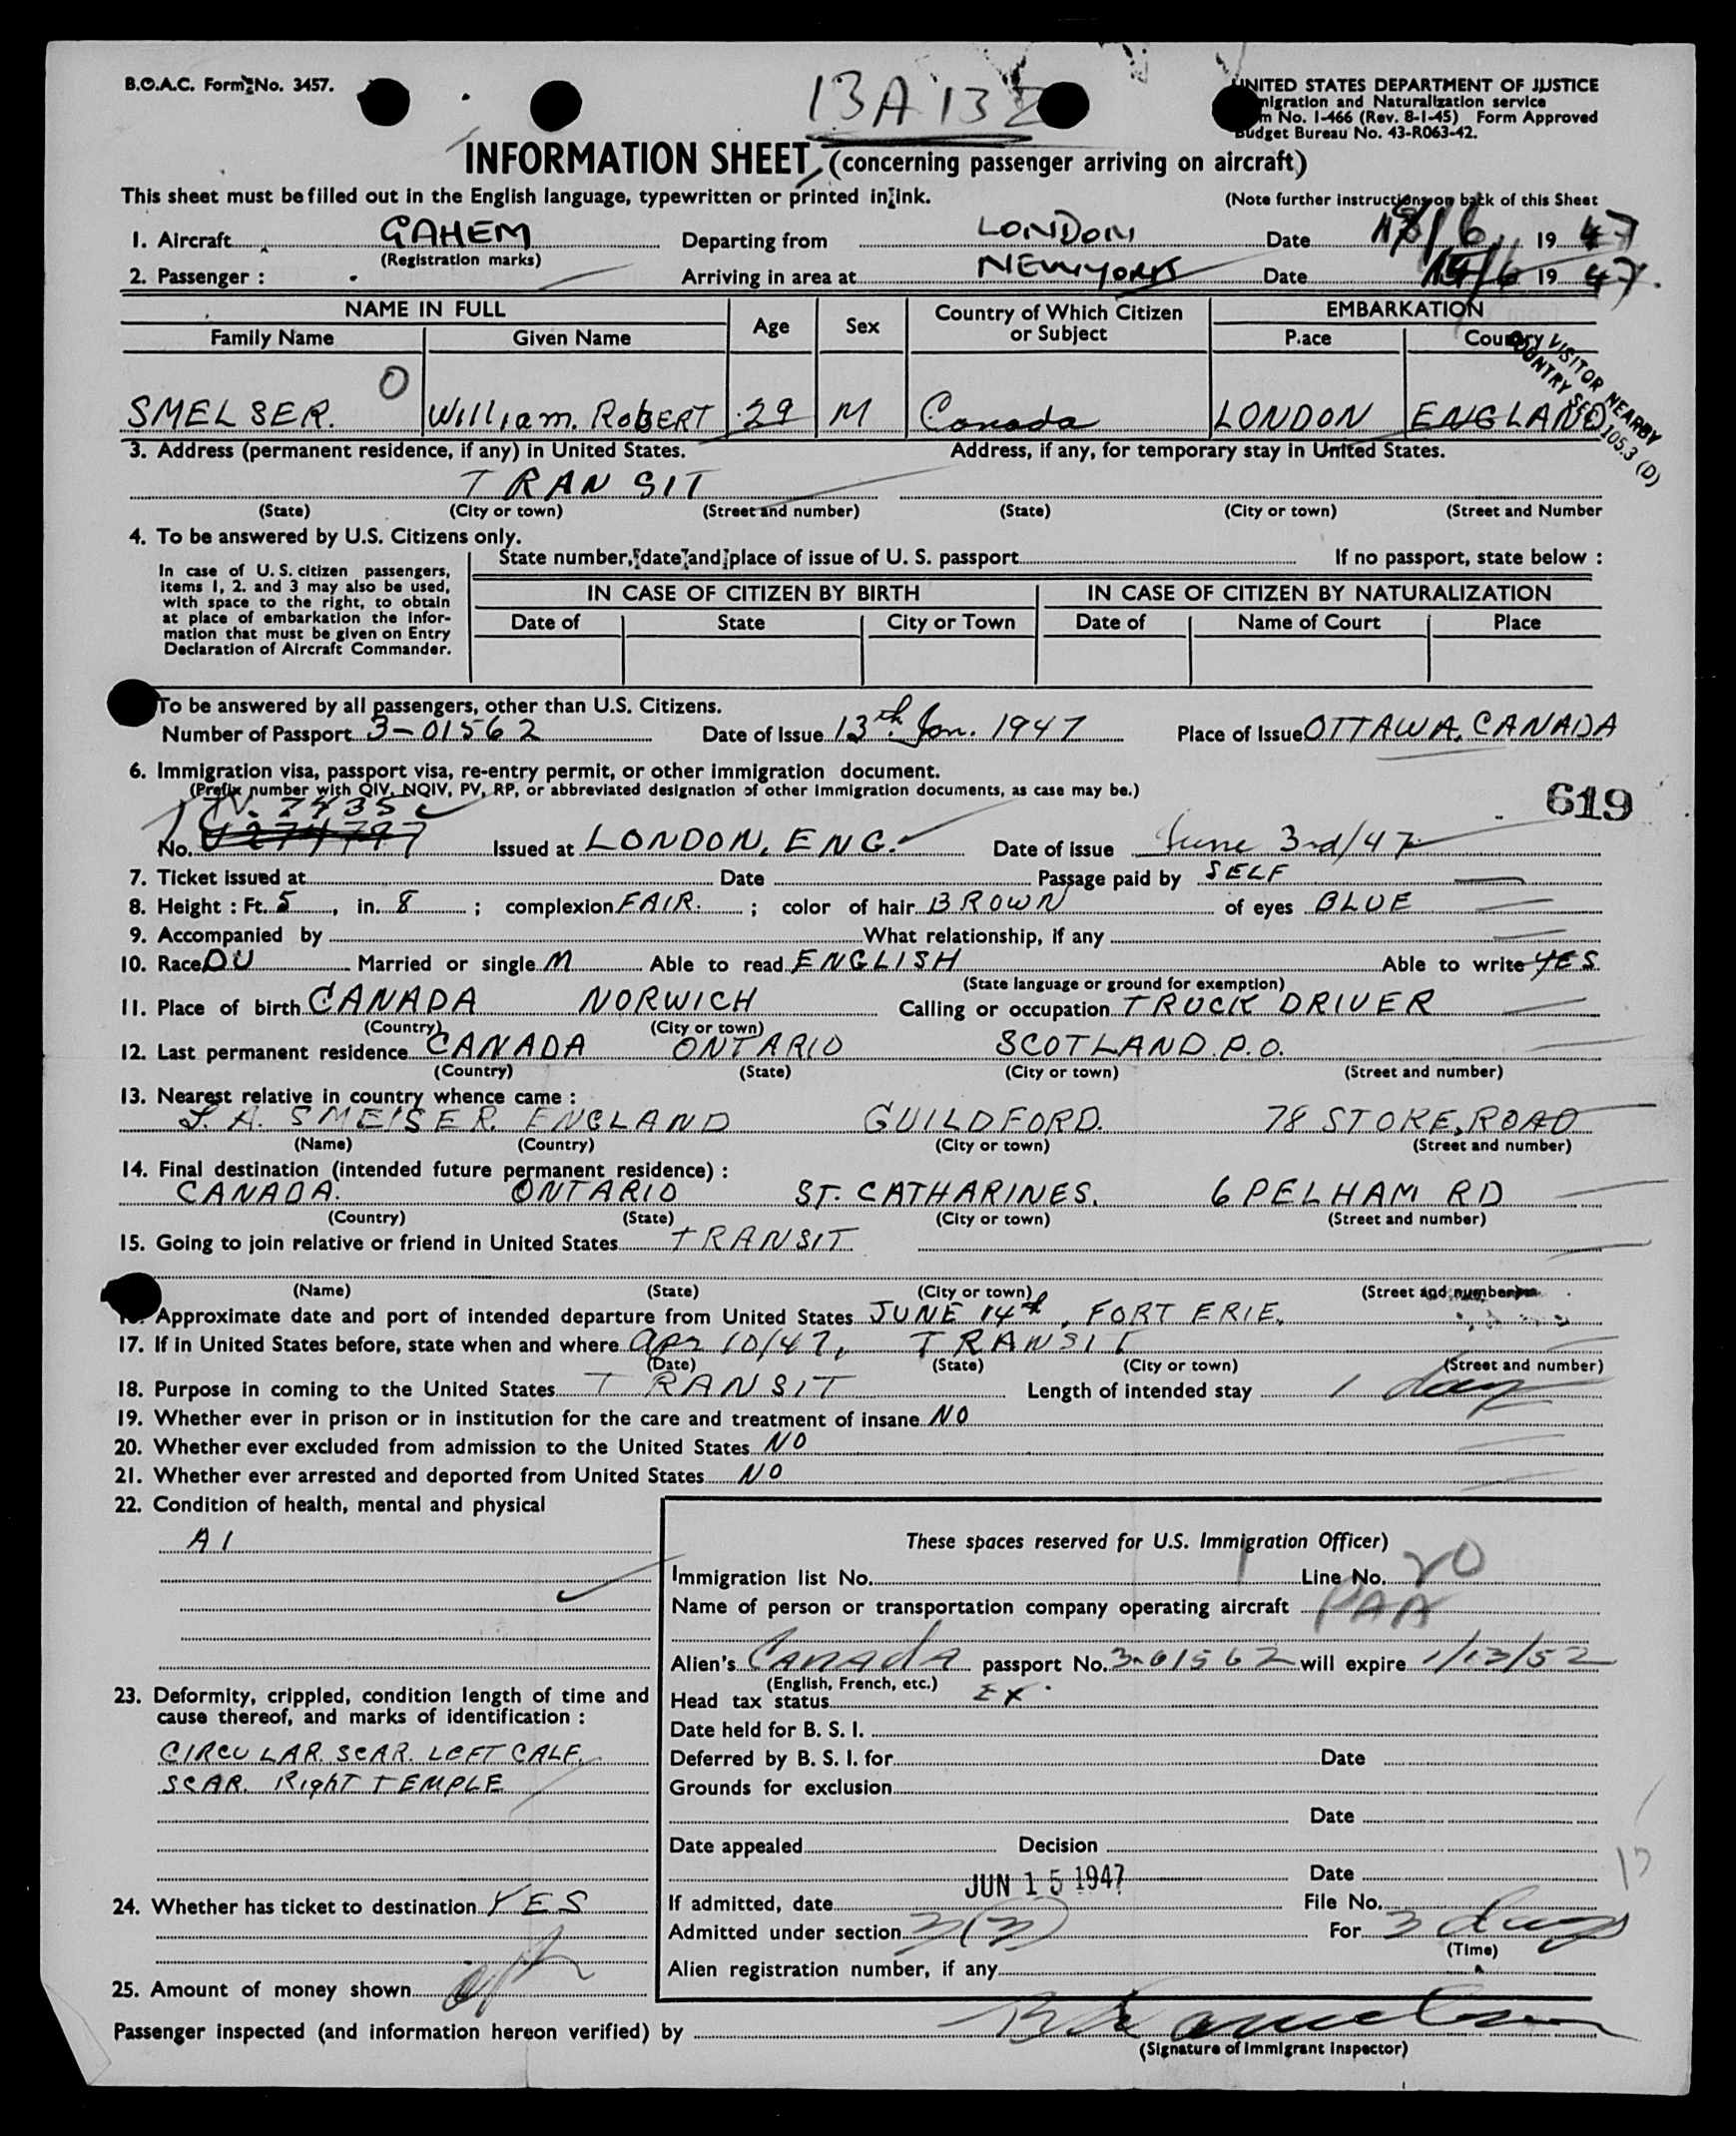 B.O.A.C. Form No. 3457.
13A 132
UNITED STATES DEPARTMENT OF JUSTICE
migration and Naturalization service
m No. I-466 (Rev. 8-1-45) Form Approved
Budget Bureau No. 43-R063-42.
INFORMATION SHEET (concerning passenger arriving on aircraft)
This sheet must be filled out in the English language, typewritten or printed in ink. (Note further instructions on back of this Sheet
1. Aircraft GAHEM Departing from LONDON Date 6 19 47
(Registration marks)
2. Passenger : Arriving in area at NEW YORK Date 6 19 47.
NAME IN FULL Age Sex Country of Which Citizen or Subject EMBARKATION
Family Name Given Name Place Country
VISITOR NEARBY
COUNTRY SEC 105.3 (D)
O
SMELSER. William. RoBERT 29 M Canada LONDON ENGLAND
3. Address (permanent residence, if any) in United States. Address, if any, for temporary stay in United States.
TRANSIT
(State) (City or town) (Street and number) (State) (City or town) (Street and Number
4. To be answered by U.S. Citizens only.
State number, date and place of issue of U. S. passport If no passport, state below :
In case of U. S. citizen passengers,
items 1, 2. and 3 may also be used,
with space to the right, to obtain
at place of embarkation the Infor-
mation that must be given on Entry
Declaration of Aircraft Commander.
IN CASE OF CITIZEN BY BIRTH IN CASE OF CITIZEN BY NATURALIZATION
Date of State City or Town Date of Name of Court Place
To be answered by all passengers, other than U.S. Citizens.
Number of Passport 3-01562 Date of Issue 13th. Jan. 1947 Place of Issue OTTAWA, CANADA
6. Immigration visa, passport visa, re-entry permit, or other immigration document.
(Prefix number with QIV, NQIV, PV, RP, or abbreviated designation of other immigration documents, as case may be.)
619
7435
No. Issued at LONDON, ENG. Date of issue June 3rd/47
7. Ticket issued at Date Passage paid by SELF
8. Height : Ft. 5, in. 8 ; complexion FAIR. ; color of hair BROWN of eyes BLUE
9. Accompanied by What relationship, if any
10. Race DU Married or single M Able to read ENGLISH Able to write YES
(State language or ground for exemption)
11. Place of birth CANADA NORWICH Calling or occupation TRUCK DRIVER
(Country) (City or town)
12. Last permanent residence CANADA ONTARIO SCOTLAND. P.O.
(Country) (State) (City or town) (Street and number)
13. Nearest relative in country whence came :
A. SMELSER. ENGLAND GUILDFORD. 78 STOKE, ROAD
(Name) (Country) (City or town) (Street and number)
14. Final destination (intended future permanent residence) :
CANADA. ONTARIO ST. CATHARINES. 6 PELHAM RD
(Country) (State) (City or town) (Street and number)
15. Going to join relative or friend in United States TRANSIT
(Name) (State) (City or town) (Street and number)
Approximate date and port of intended departure from United States JUNE 14th, FORT ERIE.
17. If in United States before, state when and where Apr 10/47, TRANSIT
(Date) (State) (City or town) (Street and number)
18. Purpose in coming to the United States TRANSIT Length of intended stay 1 day
19. Whether ever in prison or in institution for the care and treatment of insane NO
20. Whether ever excluded from admission to the United States NO
21. Whether ever arrested and deported from United States NO
22. Condition of health, mental and physical
A1
These spaces reserved for U.S. Immigration Officer)
Immigration list No. 1 Line No. 20
Name of person or transportation company operating aircraft PAA
Alien's CANADA passport No. 3-01562 will expire 1/13/52
(English, French, etc.)
23. Deformity, crippled, condition length of time and
cause thereof, and marks of identification :
CIRCULAR. SCAR. LEFT CALF.
SCAR. Right TEMPLE
Head tax status Ex
Date held for B. S. I.
Deferred by B. S. I. for Date
Grounds for exclusion
Date
Date appealed Decision
Date
JUN 15 1947
24. Whether has ticket to destination YES
If admitted, date File No.
Admitted under section 3(3) For 3 days
(Time)
Alien registration number, if any
25. Amount of money shown
Passenger inspected (and information hereon verified) by
(Signature of Immigrant Inspector)